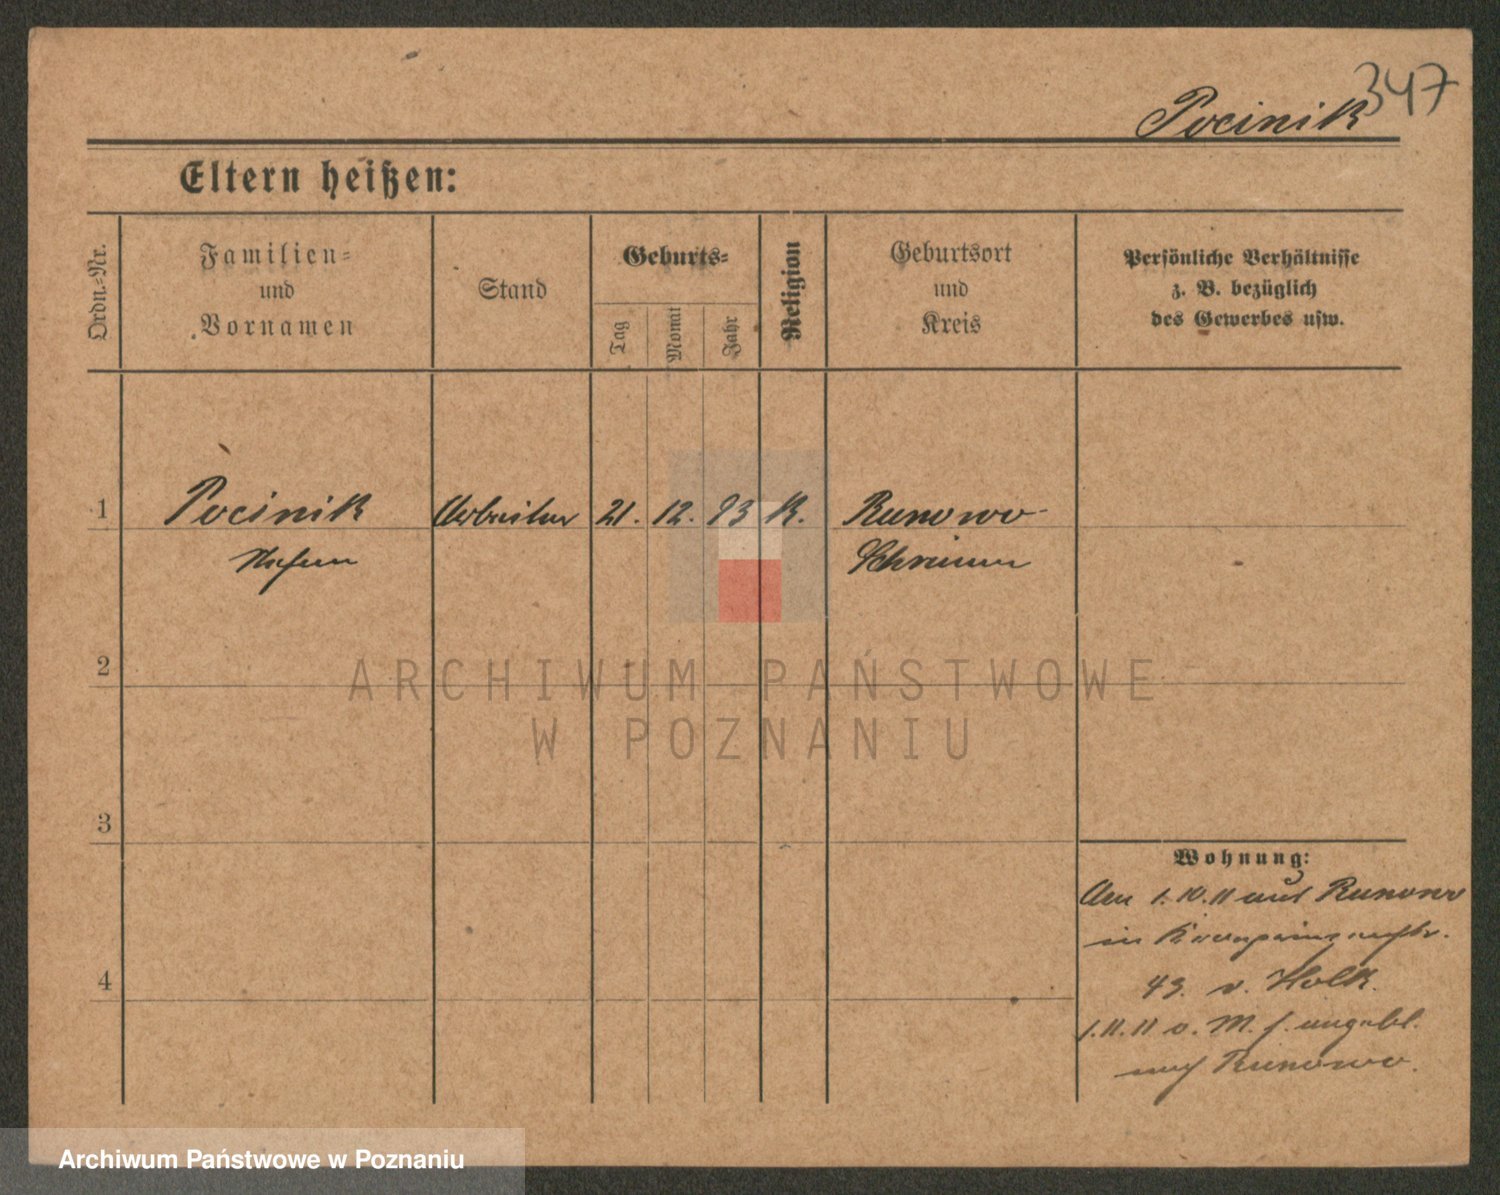 347
Pocinik
Eltern heißen:
Ordn.-Nr.
Familien-
und
Vornamen
Stand
Geburts-
Tag
Monat
Jahr
Religion
Geburtsort
und
Kreis
Persönliche Verhältnisse
z. B. bezüglich
des Gewerbes usw.
1 Pocinik Arbeiter 21. 12. 93 K. Runowo
Schrimm
2
ARCHIWUM PAŃSTWOWE
W POZNANIU
3
Wohnung:
Am 1.10.11 aus Runowo
in Kronprinzenstr.
43. v. Holk.
4
1.11.11 o. M. f. angebl.
nach Runowo.
Archiwum Państwowe w Poznaniu